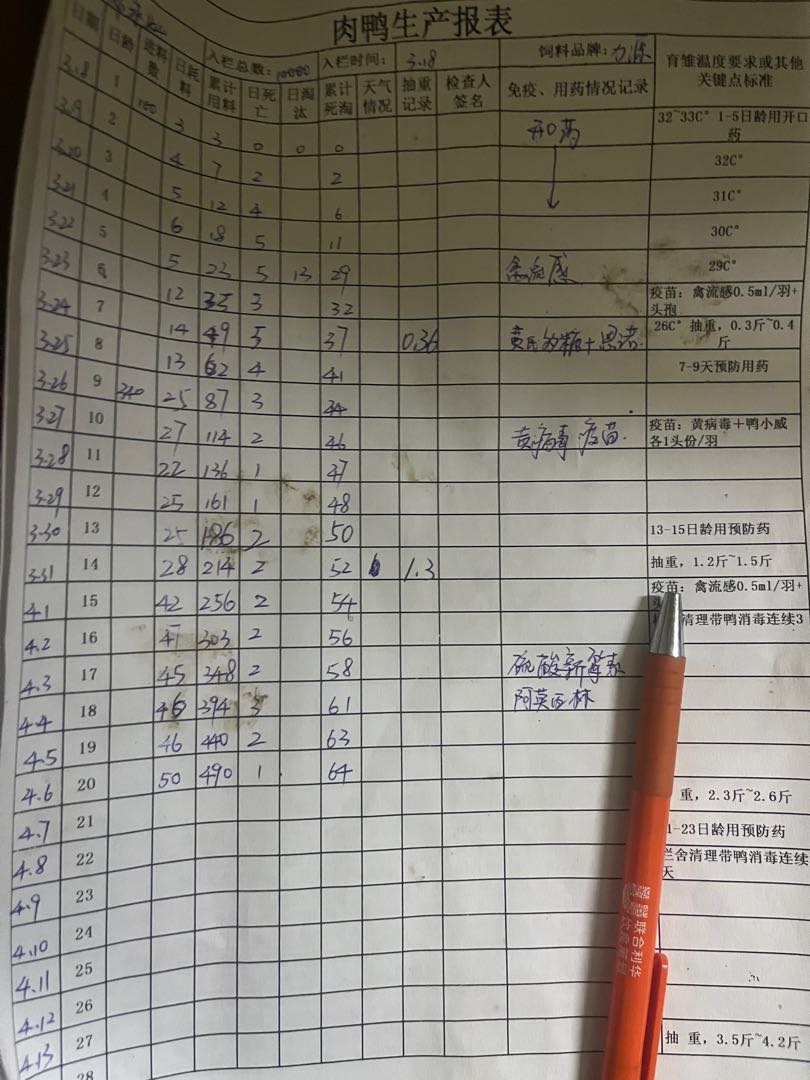 肉鸭生产报表
日期 日龄 进料数 日耗料 入栏总数: 10000 入栏时间: 3.18 饲料品牌: 力源 育雏温度要求或其他关键点标准
累计用料 日死亡 日淘汰 累计死淘 天气情况 抽重记录 检查人签名 免疫、用药情况记录
3.18 1 180 3 3 0 0 0 开口药 32~33C° 1-5日龄用开口药
3.19 2 4 7 2 2 32C°
3.20 3 5 12 4 6 31C°
3.21 4 6 18 5 11 30C°
3.22 5 5 23 5 13 29 禽流感 29C°
3.23 6 12 35 3 32 疫苗: 禽流感0.5ml/羽+头孢
3.24 7 14 49 5 37 0.36 26C° 抽重, 0.3斤~0.4斤
3.25 8 13 62 4 41 7-9天预防用药
3.26 9 340 25 87 3 44
3.27 10 27 114 2 46 黄病毒 疫苗. 疫苗: 黄病毒+鸭小威各1头份/羽
3.28 11 22 136 1 47
3.29 12 25 161 1 48
3.30 13 25 186 2 50 13-15日龄用预防药
3.31 14 28 214 2 52 1.3 抽重, 1.2斤~1.5斤
4.1 15 42 256 2 54 疫苗: 禽流感0.5ml/羽+
4.2 16 47 303 2 56 清理带鸭消毒连续3
4.3 17 45 348 2 58 硫酸新霉素
4.4 18 46 394 3 61 阿莫西林
4.5 19 46 440 2 63
4.6 20 50 490 1 64 重, 2.3斤~2.6斤
4.7 21 1-23日龄用预防药
4.8 22 栏舍清理带鸭消毒连续天
4.9 23
4.10 24
4.11 25
4.12 26
4.13 27 抽 重, 3.5斤~4.2斤
28
联合利华
饮食策划